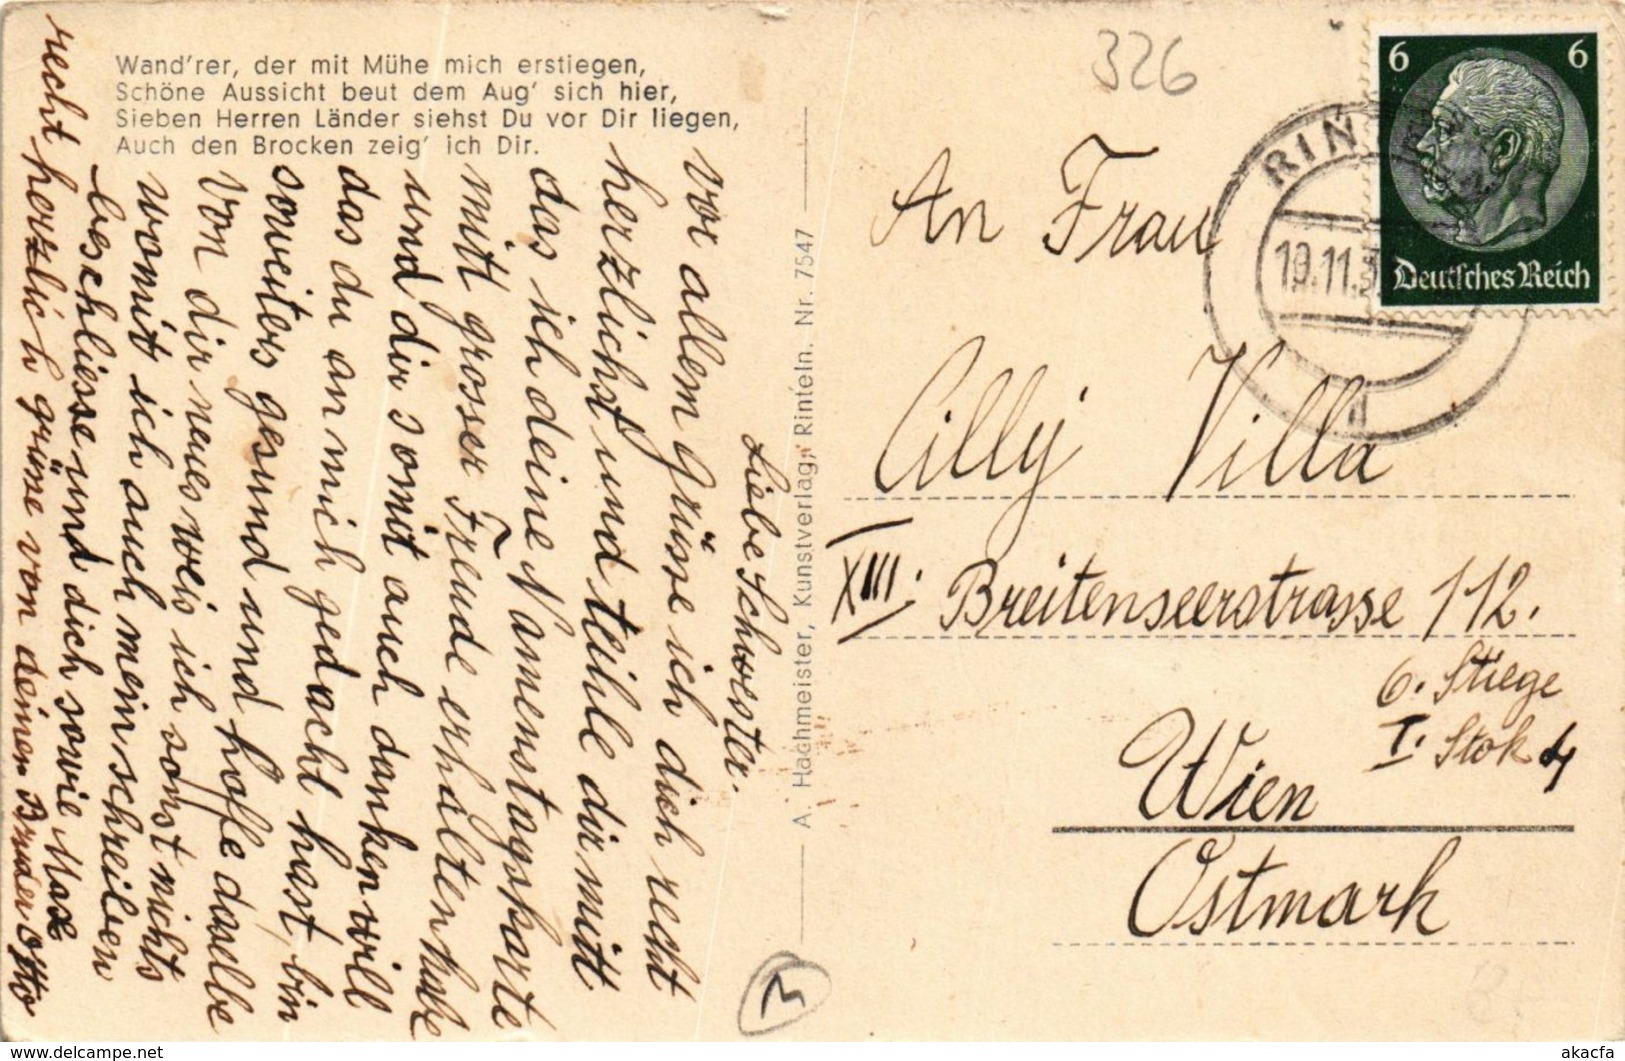 Wand'rer, der mit Mühe mich erstiegen,
Schöne Aussicht beut dem Aug' sich hier,
Sieben Herren Länder siehst Du vor Dir liegen,
Auch den Brocken zeig' ich Dir.
Liebe Schwester.
Vor allem grüsse ich dich recht
herzlichst und teile dir mitt
das ich deine Namenstagskarte
mitt grosser Freude erhalten habe
und dir somit auch danken will
das du an mich gedacht hast, bin
soweiters gesund und hoffe dasselbe
von dir neues weis ich sonst nichts
womit ich auch mein schreiben
beschliesse und dich sowie Max
recht herzlich grüsse von deinen Bruder Otto
A. Hachmeister, Kunstverlag, Rinteln. Nr. 7547
326
RIN
19.11.3
6 6
Deutsches Reich
An Frau
Cilly Villa
XIII. Breitenseerstrasse 112.
6. Stiege
I. Stok 4
Wien
Ostmark
akacfa